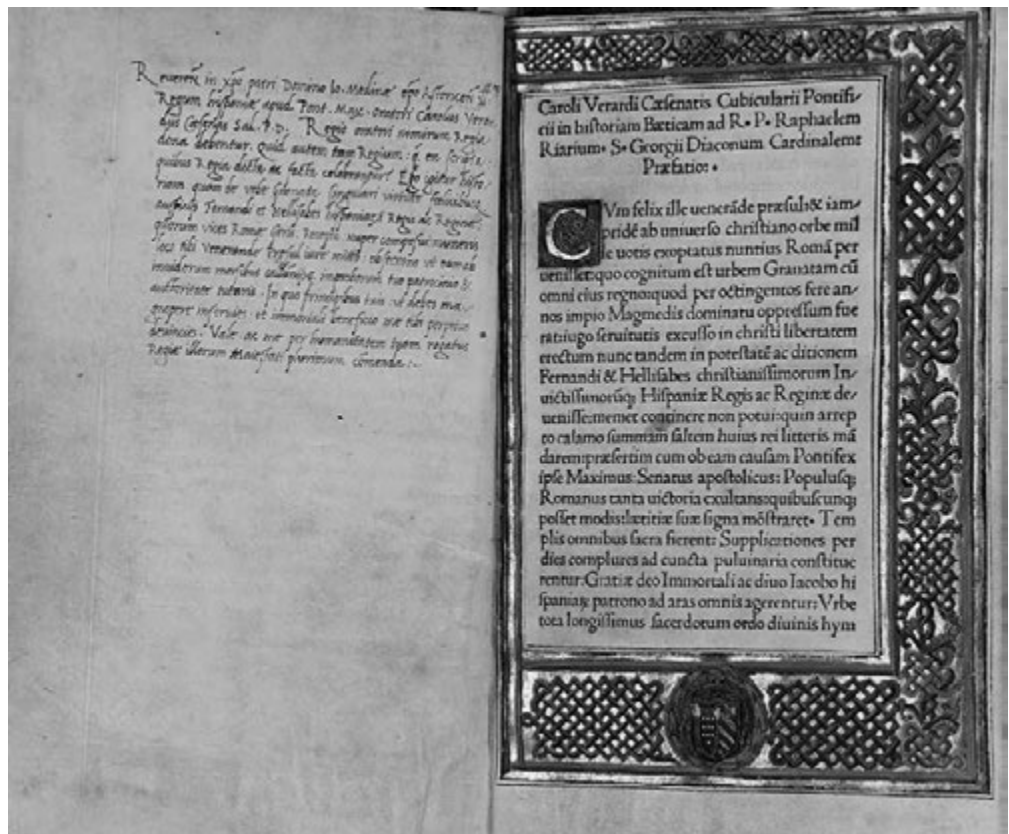 Reueren in xpo patri Domino Io. Medinae epo Astoricen
Regum hispaniae apud Pont. Max. oratori Carolus Verar
dus Caesenas Sal. P. D. Regio oratori nimirum Regia
dona debentur. quid autem tam Regium. q̃ en scripta.
quibus Regia dicta ac facta celebrantur? Ego igitur histo
riam quam de urbe Granata singulari uirtute
auspicijs Fernandi et Hellisabes hispaniaȝ Regis ac Reginae
quorum uices Romae geris. Recepta nuper composui
loco tibi Venerande Praesul iure mitto.
inuidorum morsibus tuo patrocinio &
authoritate tutaris. In quo principibus tuis ut debes ma
gnopere inseruies. et immortali beneficio me tibi perpetuo
deuincies. Vale ac me pro humanitate tuam rogatus
Regiae illorum Maiestati plurimum comenda:~
Caroli Verardi Cæsenatis Cubicularii Pontifi/
cii in historiam Bæticam ad R. P. Raphaelem
Riarium. S. Georgii Diaconum Cardinalemꝫ
Præfatio: .
CVm felix ille uenerãde præsul:& iam/
pridẽ ab uniuerso christiano orbe mil
le uotis exoptatus nuntius Romã per
uenisset:quo cognitum est urbem Granatam cũ
omni eius regno:quod per octingentos fere an/
nos impio Magmedis dominatu oppressum fue
rat:iugo seruitutis excusso in christi libertatem
erectum nunc tandem in potestatẽ ac ditionem
Fernandi & Hellisabes christianissimorum In/
uictissimorũqꝫ Hispaniæ Regis ac Reginæ de/
uenisse:memet continere non potui:quin arrep
to calamo summam saltem huius rei litteris mã
darem:præsertim cum ob eam causam Pontifex
ipse Maximus: Senatus apostolicus: Populusqꝫ
Romanus tanta uictoria exultans:quibuscunqꝫ
posset modis:lætitiæ suæ signa mõstraret. Tem
plis omnibus sacra fierent: Supplicationes per
dies complures ad cuncta puluinaria constitue
rentur:Gratiæ deo Immortali ac diuo Iacobo hi
spaniaꝝ patrono ad aras omnis agerentur: Vrbe
tota longissimus sacerdotum ordo diuinis hym